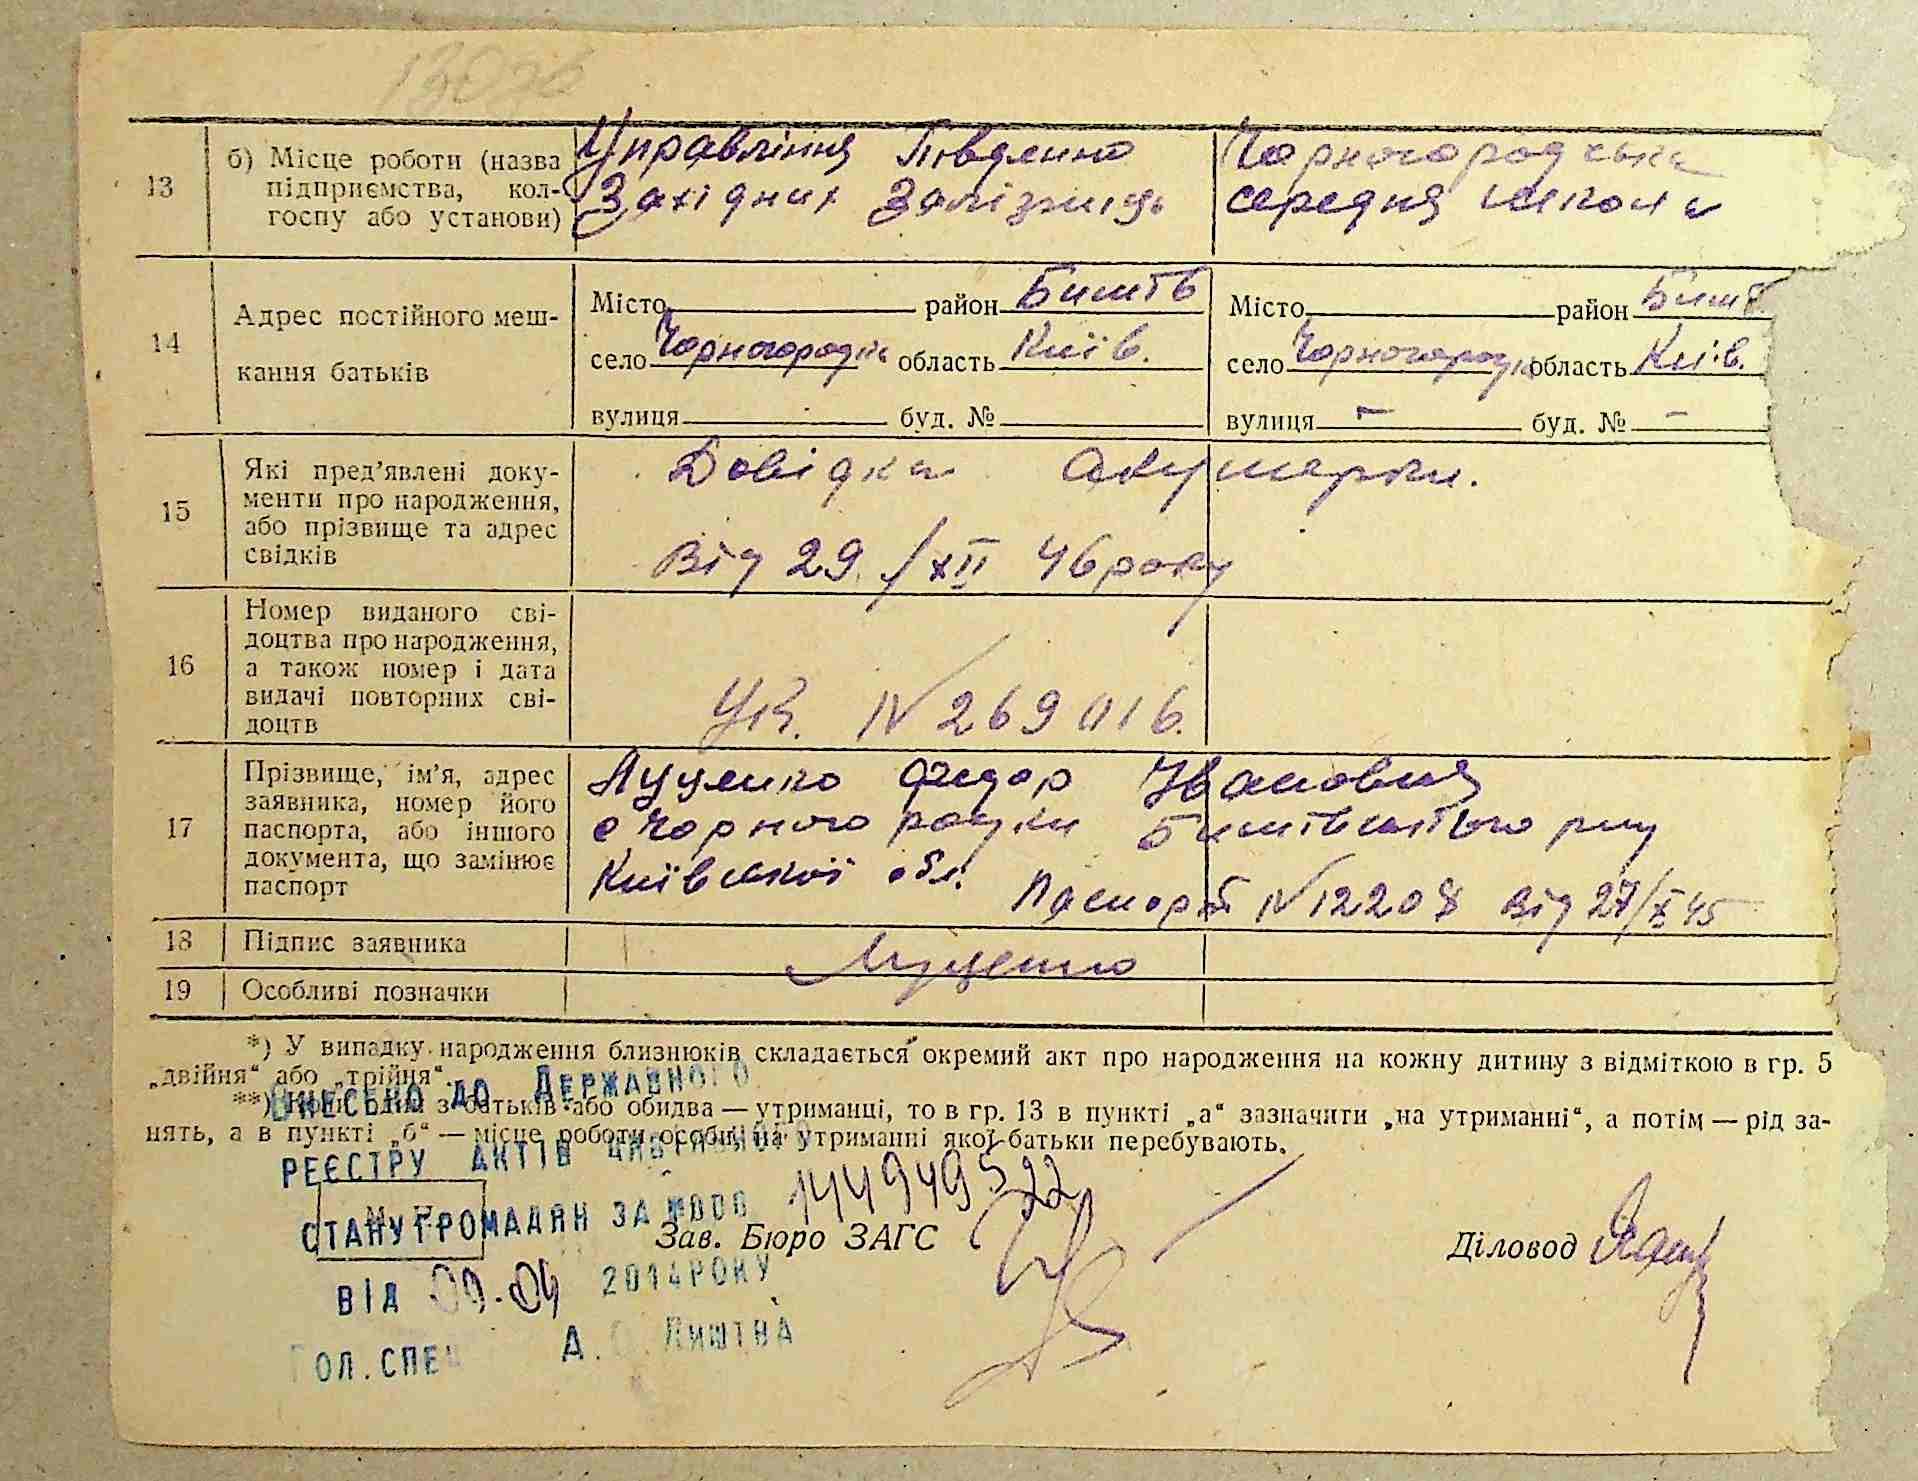 13
б) Місце роботи (назва
підприємства, кол-
госпу або установи)
Управління Південно
Західних Залізниць
Чорногородська
середня школа
14
Адрес постійного меш-
кання батьків
Місто район Бишів
село Чорногородк область Київ.
вулиця буд. №
Місто район Биш
село Чорногородк область Київ.
вулиця – буд. № –
15
Які пред'явлені доку-
менти про народження,
або прізвище та адрес
свідків
Довідка акушерки.
Від 29/XII 46 року
16
Номер виданого сві-
доцтва про народження,
а також номер і дата
видачі повторних сві-
доцтв
УК. № 269016.
17
Прізвище, ім'я, адрес
заявника, номер його
паспорта, або іншого
документа, що замінює
паспорт
Луценко Федор Іванович
с Чорногородки Бишівського р-ну
Київської обл. Паспорт № 12208 від 27/X 45
18
Підпис заявника
Луценко
19
Особливі позначки
*) У випадку народження близнюків складається окремий акт про народження на кожну дитину з відміткою в гр. 5
„двійня“ або „трійня“.
**) Коли один з батьків або обидва — утриманці, то в гр. 13 в пункті „а“ зазначити „на утриманні“, а потім — рід за-
нять, а в пункті „б“ — місце роботи особи, на утриманні якої батьки перебувають.
ВНЕСЕНО ДО ДЕРЖАВНОГО
РЕЄСТРУ АКТІВ ЦИВІЛЬНОГО
СТАНУ ГРОМАДЯН ЗА №000 14494952
Зав. Бюро ЗАГС
Діловод
ВІД 09.04 2014 РОКУ
ГОЛ. СПЕЦ А. О. ЛИШТВА